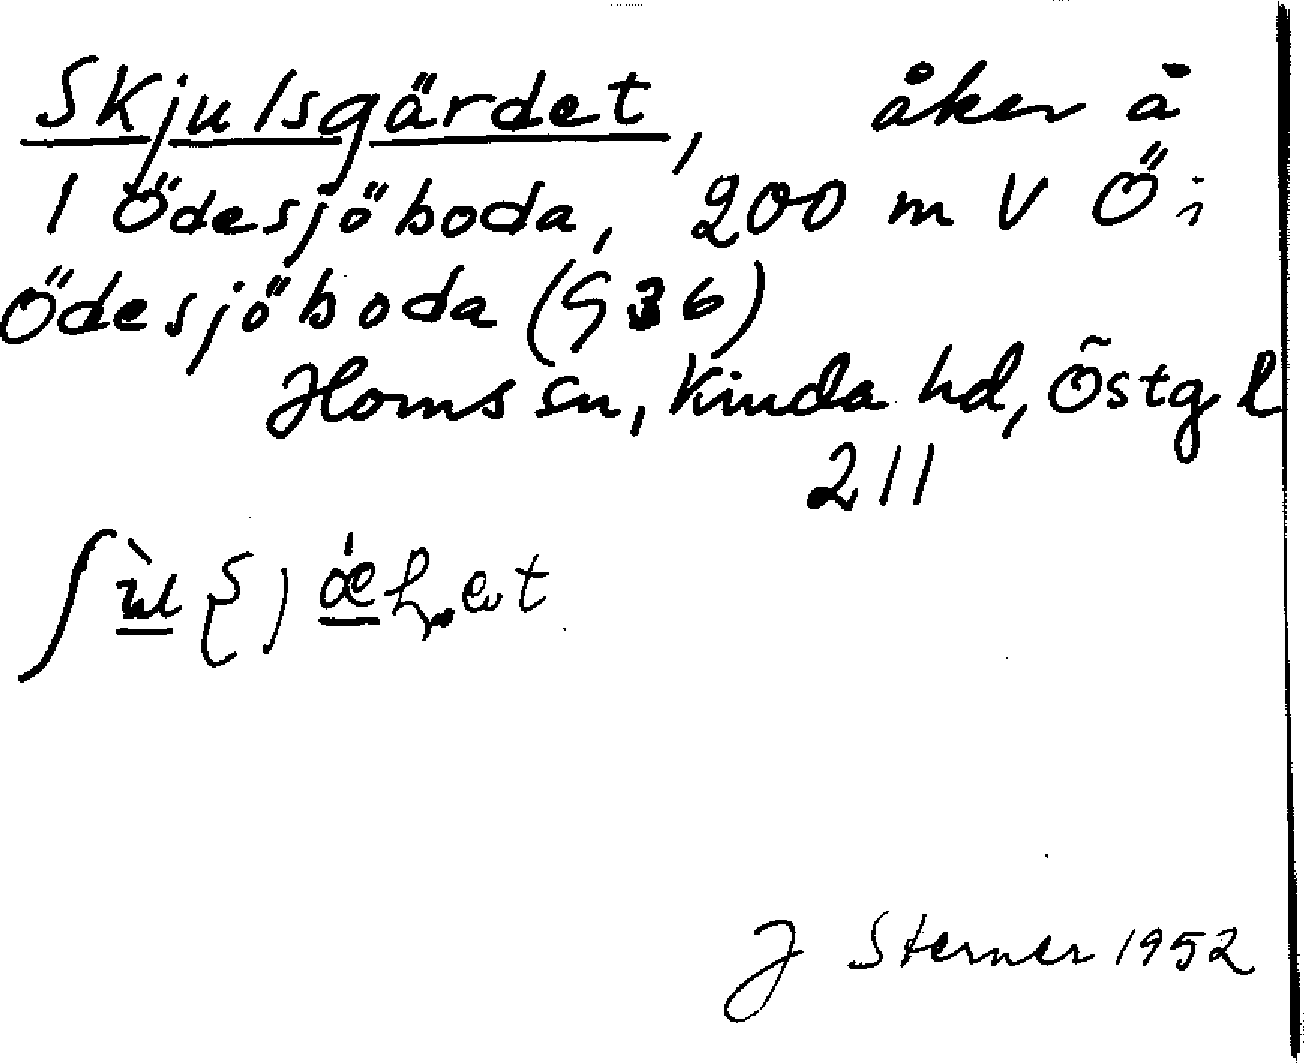 Skjulsgärdet, åker å
1 Ödesjöboda, 200 m V Ö i
Ödesjöboda (§ 36)
Homs sn, Kinda hd, Östg l
211
J Sterner 1952